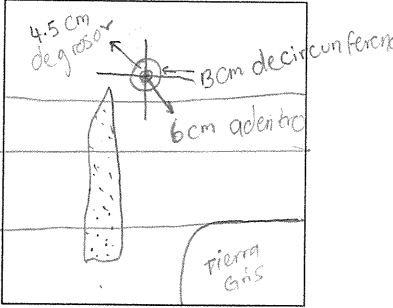 4.5 cm
de grosor
13cm de circunferenc
6cm adentro
Tierra
Gris